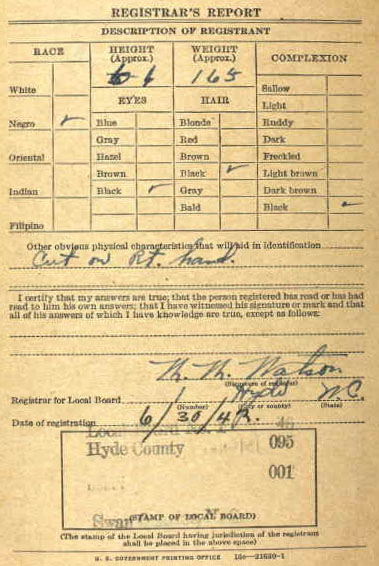 REGISTRAR'S REPORT
DESCRIPTION OF REGISTRANT
RACE HEIGHT (Approx.) WEIGHT (Approx.) COMPLEXION
6 165
White Sallow
EYES HAIR Light
Negro ✓ Blue Blonde Ruddy
Gray Red Dark
Oriental Hazel Brown Freckled
Brown Black ✓ Light brown
Indian Black ✓ Gray Dark brown
Bald Black ✓
Filipino
Other obvious physical characteristics that will aid in identification
Cut on Rt. hand.
I certify that my answers are true; that the person registered has read or has had
read to him his own answers; that I have witnessed his signature or mark and that
all of his answers of which I have knowledge are true, except as follows:
Watson
(Signature of registrar)
Registrar for Local Board 1 Hyde N.C.
(Number) (City or county) (State)
Date of registration 6/30/42.
Local
Hyde County 095
001
Swan
(STAMP OF LOCAL BOARD)
(The stamp of the Local Board having jurisdiction of the registrant
shall be placed in the above space)
U. S. GOVERNMENT PRINTING OFFICE 16o—21630-1